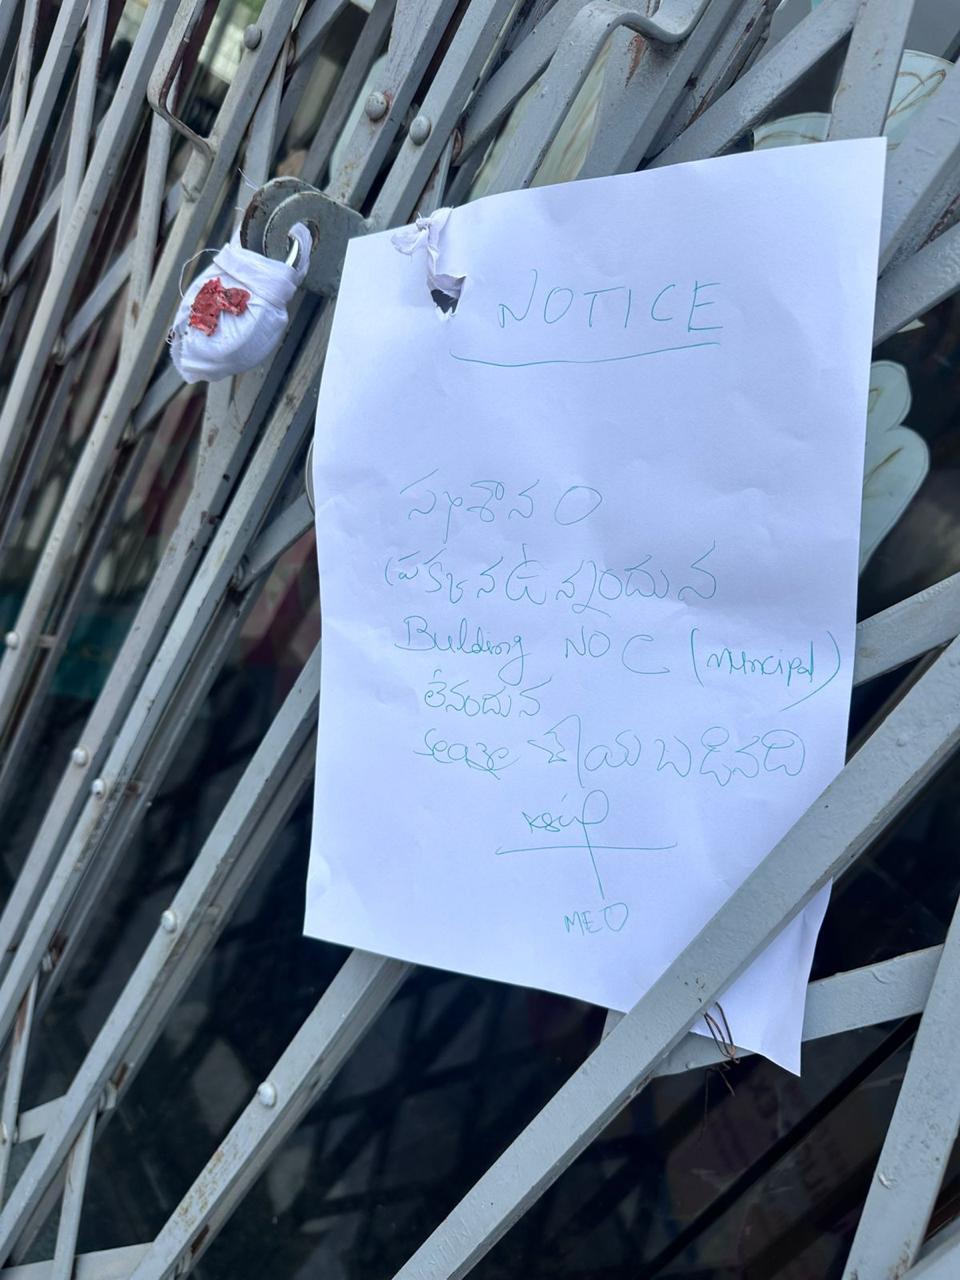 NOTICE
స్మశానం
ప్రక్కన ఉన్నందున
Bulding NOC (Muncipal)
లేనందున
సీజ్ చేయబడినది
MEO